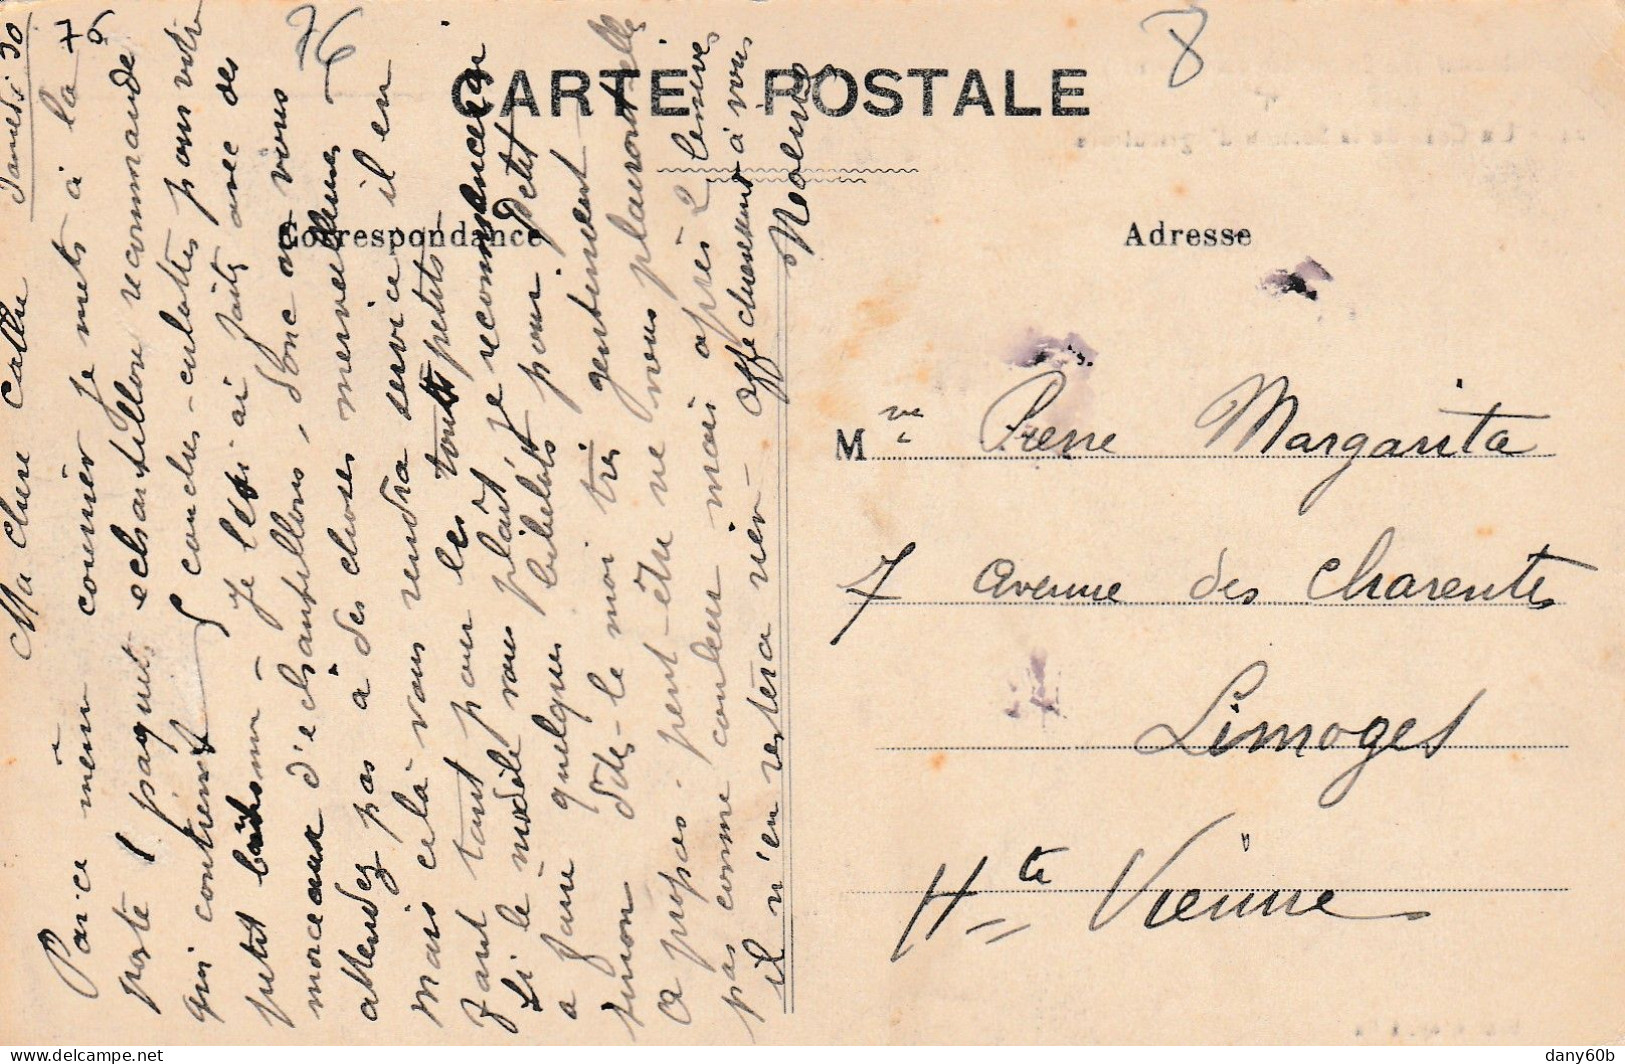 76
8
CARTE POSTALE
Correspondance
Adresse
Samedi 30
76
Ma chère Cathe
Par ce même courrier je mets à la
poste 1 paquet echantillon recommandé
qui contient 5 couches-culottes pour votre
petit - je les ai faits avec des
morceaux d'echantillons, donc ne vous
attendez pas à des choses merveilleuses -
mais celà vous rendra service il en
faut tant pour les tout petits
Si le modèle vous plaît, je recommencerai
a faire quelques bibelots pour petit
sinon dites-le moi très gentiment
A propos peut-être ne vous plairont elles
pas comme couleur mais après 2 lessives
il n'en restera rien - Affectueusement à vous
M me Pierre Margarita
7 avenue des Charentes
Limoges
Hte Vienne
delcampe.net
dany60b